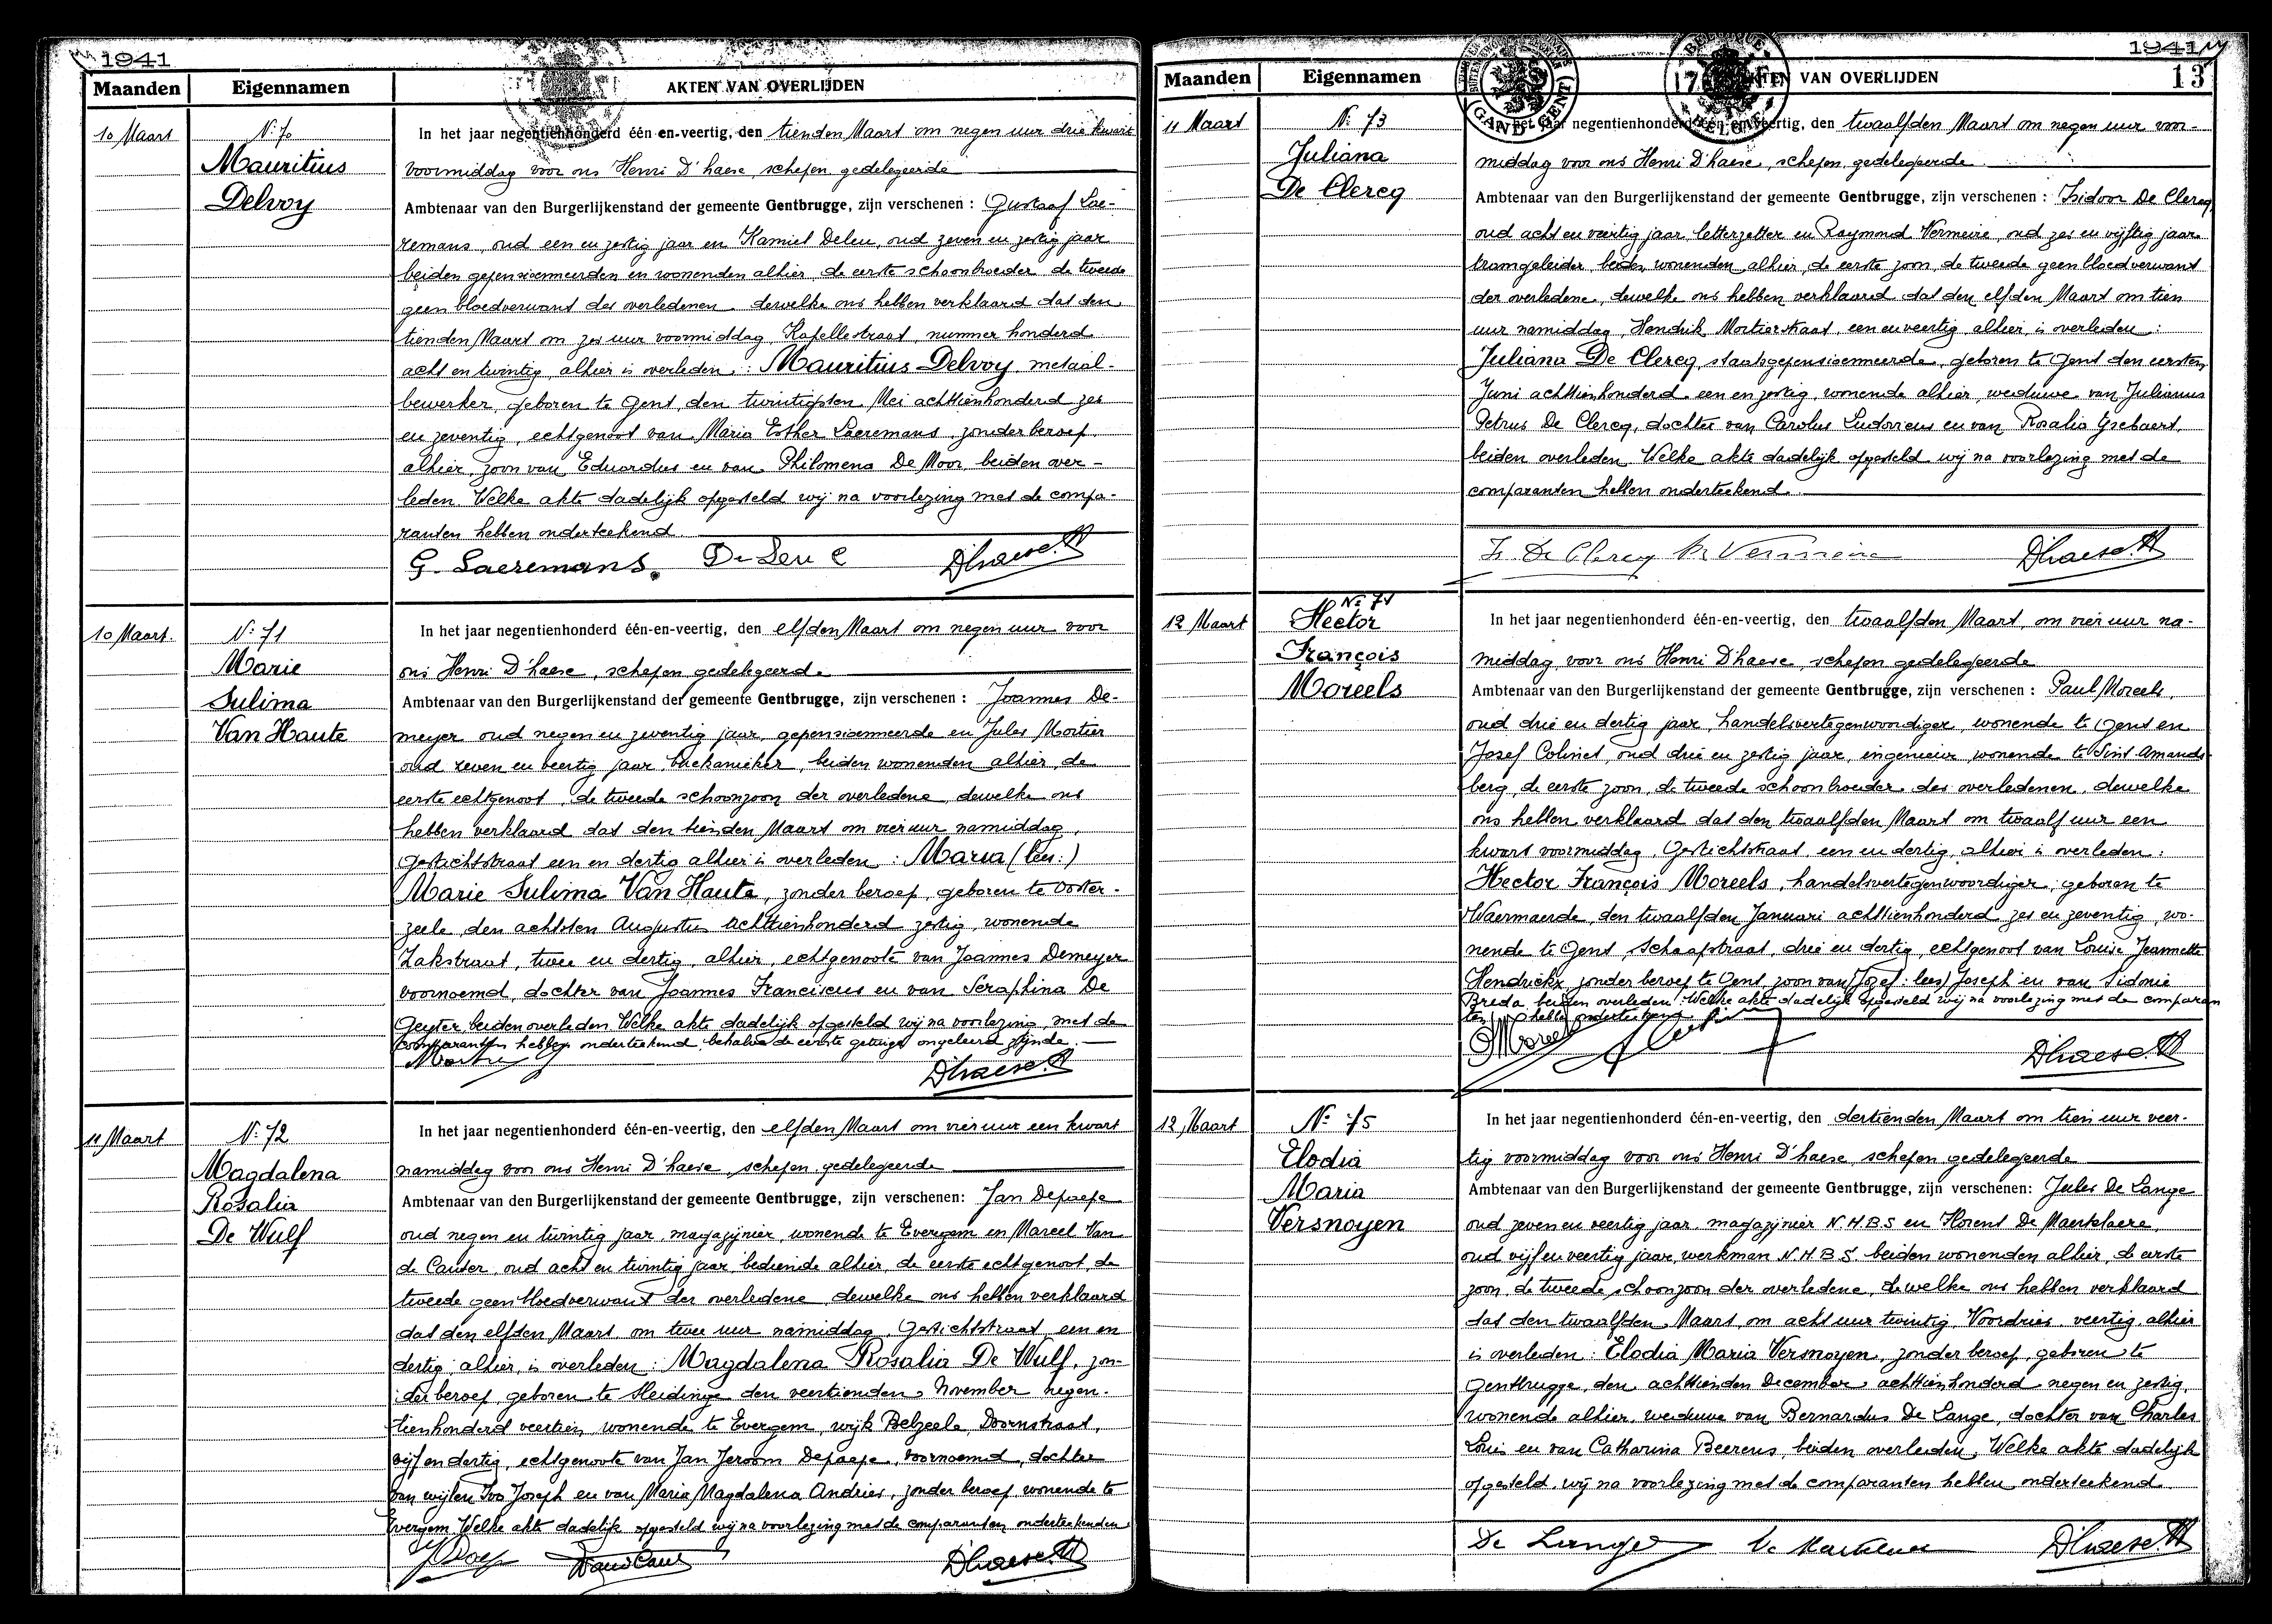 1941
Maanden Eigennamen AKTEN VAN OVERLIJDEN
10 Maart N: 70
Mauritius
Delvoy
In het jaar negentienhonderd één-en-veertig, den tienden Maart om negen uur drie kwart
voormiddag voor ons Henri D'haese, schepen gedelegeerde
Ambtenaar van den Burgerlijkenstand der gemeente Gentbrugge, zijn verschenen : Gustaaf Lae-
remans, oud een en zestig jaar en Kamiel Deleu, oud zeven en zestig jaar
beiden gepensioenneerden en wonenden alhier, de eerste schoonbroeder de tweede
geen bloedverwant des overledenen dewelke ons hebben verklaard dat den
tienden Maart om zes uur voormiddag, Kapellestraat, nummer honderd
acht en twintig, alhier is overleden : Mauritius Delvoy, metaal-
bewerker, geboren te Gent, den twintigsten Mei achttienhonderd zes
en zeventig, echtgenoot van Maria Esther Laeremans zonder beroep
alhier, zoon van Eduardus en van Philomena De Moor beiden over-
leden. Welke akte dadelijk opgesteld wij na voorlezing met de compa-
ranten hebben onderteekend.
G. Laeremans. De Leu C Dhaese.H
10 Maart. N: 71
Marie
Sulima
Van Haute
In het jaar negentienhonderd één-en-veertig, den elfden Maart om negen uur voor
ons Henri D'haese, schepen gedelegeerde
Ambtenaar van den Burgerlijkenstand der gemeente Gentbrugge, zijn verschenen : Joannes De-
meyer oud negen en zeventig jaar, gepensioenneerde en Jules Mortier
oud zeven en veertig jaar, mekanieker, beiden wonenden alhier, de
eerste echtgenoot, de tweede schoonzoon der overledene, dewelke ons
hebben verklaard dat den tienden Maart om vier uur namiddag,
Gestichtstraat een en dertig alhier is overleden : Maria (lees:)
Marie Sulima Van Haute, zonder beroep, geboren te Ooster-
zeele, den achtsten Augustus achttienhonderd zestig, wonende
Zakstraat, twee en dertig, alhier, echtgenoote van Joannes Demeyer
voornoemd, dochter van Joannes Franciscus en van Seraphina De
Geyter, beiden overleden. Welke akte dadelijk opgesteld wij na voorlezing, met de
comparanten hebben onderteekend, behalve de eerste getuige ongeleerd zijnde.
Dhaese.H
11 Maart N: 72
Magdalena
Rosalia
De Wulf
In het jaar negentienhonderd één-en-veertig, den elfden Maart om vier uur een kwart
namiddag voor ons Henri D'haese, schepen gedelegeerde
Ambtenaar van den Burgerlijkenstand der gemeente Gentbrugge, zijn verschenen: Jan Depaepe
oud negen en twintig jaar, magazijnier, wonende te Evergem en Marcel Van
de Cauter, oud acht en twintig jaar, bediende alhier, de eerste echtgenoot, de
tweede geen bloedverwant der overledene, dewelke ons hebben verklaard
dat den elfden Maart om twee uur namiddag, Gestichtstraat een en
dertig alhier, is overleden : Magdalena Rosalia De Wulf, zon-
der beroep, geboren te Sleidinge den veertienden November negen-
tienhonderd veertien, wonende te Evergem, wijk Belzeele, Doornstraat,
vijf en dertig, echtgenoote van Jan Jeroom Depaepe, voornoemd, dochter
van wijlen Ivo Joseph en van Maria Magdalena Andries, zonder beroep wonende te
Evergem. Welke akte dadelijk opgesteld wij na voorlezing met de comparanten onderteekenden
Dhaese.H
1941
Maanden Eigennamen AKTEN VAN OVERLIJDEN 13
11 Maart N: 73
Juliana
De Clercq
In het jaar negentienhonderd één-en-veertig, den twaalfden Maart om negen uur voor-
middag voor ons Henri D'haese, schepen gedelegeerde
Ambtenaar van den Burgerlijkenstand der gemeente Gentbrugge, zijn verschenen : Isidoor De Clercq
oud acht en veertig jaar, letterzetter en Raymond Vermeire, oud zes en vijftig jaar
tramgeleider, beiden wonenden alhier, de eerste zoon, de tweede geen bloedverwant
der overledene, dewelke ons hebben verklaard dat den elfden Maart om tien
uur namiddag, Hendrik Mortierstraat, een en veertig alhier is overleden :
Juliana De Clercq, staatsgepensioenneerde, geboren te Gent den eersten
Juni achttienhonderd een en zestig, wonende alhier, weduwe van Julianus
Petrus De Clercq, dochter van Carolus Ludovicus en van Rosalia Gsebaert,
beiden overleden. Welke akte dadelijk opgesteld wij na voorlezing met de
comparanten hebben onderteekend.
Is. De Clercq R. Vermeire Dhaese.H
12 Maart N: 74
Hector
François
Moreels
In het jaar negentienhonderd één-en-veertig, den twaalfden Maart, om vier uur na-
middag voor ons Henri D'haese, schepen gedelegeerde
Ambtenaar van den Burgerlijkenstand der gemeente Gentbrugge, zijn verschenen : Paul Moreels,
oud drie en dertig jaar, handelsvertegenwoordiger, wonende te Gent en
Jozef Colinet, oud drie en zestig jaar, ingenieur, wonende te Sint Amands-
berg, de eerste zoon, de tweede schoonbroeder des overledenen, dewelke
ons hebben verklaard dat den twaalfden Maart om twaalf uur een
kwart voormiddag, Gestichtstraat, een en dertig, alhier is overleden :
Hector François Moreels, handelsvertegenwoordiger, geboren te
Waermaerde, den twaalfden Januari achttienhonderd zes en zeventig, wo-
nende te Gent, Schaapstraat, drie en dertig, echtgenoot van Louise Jeannette
Hendrickx zonder beroep te Gent, zoon van (Jozef: lees) Joseph en van Sidonie
Breda beiden overleden. Welke akte dadelijk opgesteld wij na voorlezing met de comparan
ten hebben onderteekend.
Dhaese.H
12 Maart N: 75
Elodia
Maria
Versnoyen
In het jaar negentienhonderd één-en-veertig, den dertienden Maart om tien uur veer-
tig voormiddag voor ons Henri D'haese, schepen gedelegeerde
Ambtenaar van den Burgerlijkenstand der gemeente Gentbrugge, zijn verschenen: Jules De Lange
oud zeven en veertig jaar, magazijnier N.H.B.S en Florent De Maertelaere,
oud vijf en veertig jaar, werkman N.H.B.S. beiden wonenden alhier, de eerste
zoon, de tweede schoonzoon der overledene, dewelke ons hebben verklaard
dat den twaalfden Maart, om acht uur twintig, Voordries, veertig alhier
is overleden : Elodia Maria Versnoyen, zonder beroep, geboren te
Gentbrugge, den achttienden December achttienhonderd negen en zestig,
wonende alhier, weduwe van Bernardus De Lange, dochter van Charles
Louis en van Catharina Beerens, beiden overleden. Welke akte dadelijk
opgesteld, wij na voorlezing met de comparanten hebben onderteekend.
De Lange Dhaese.H